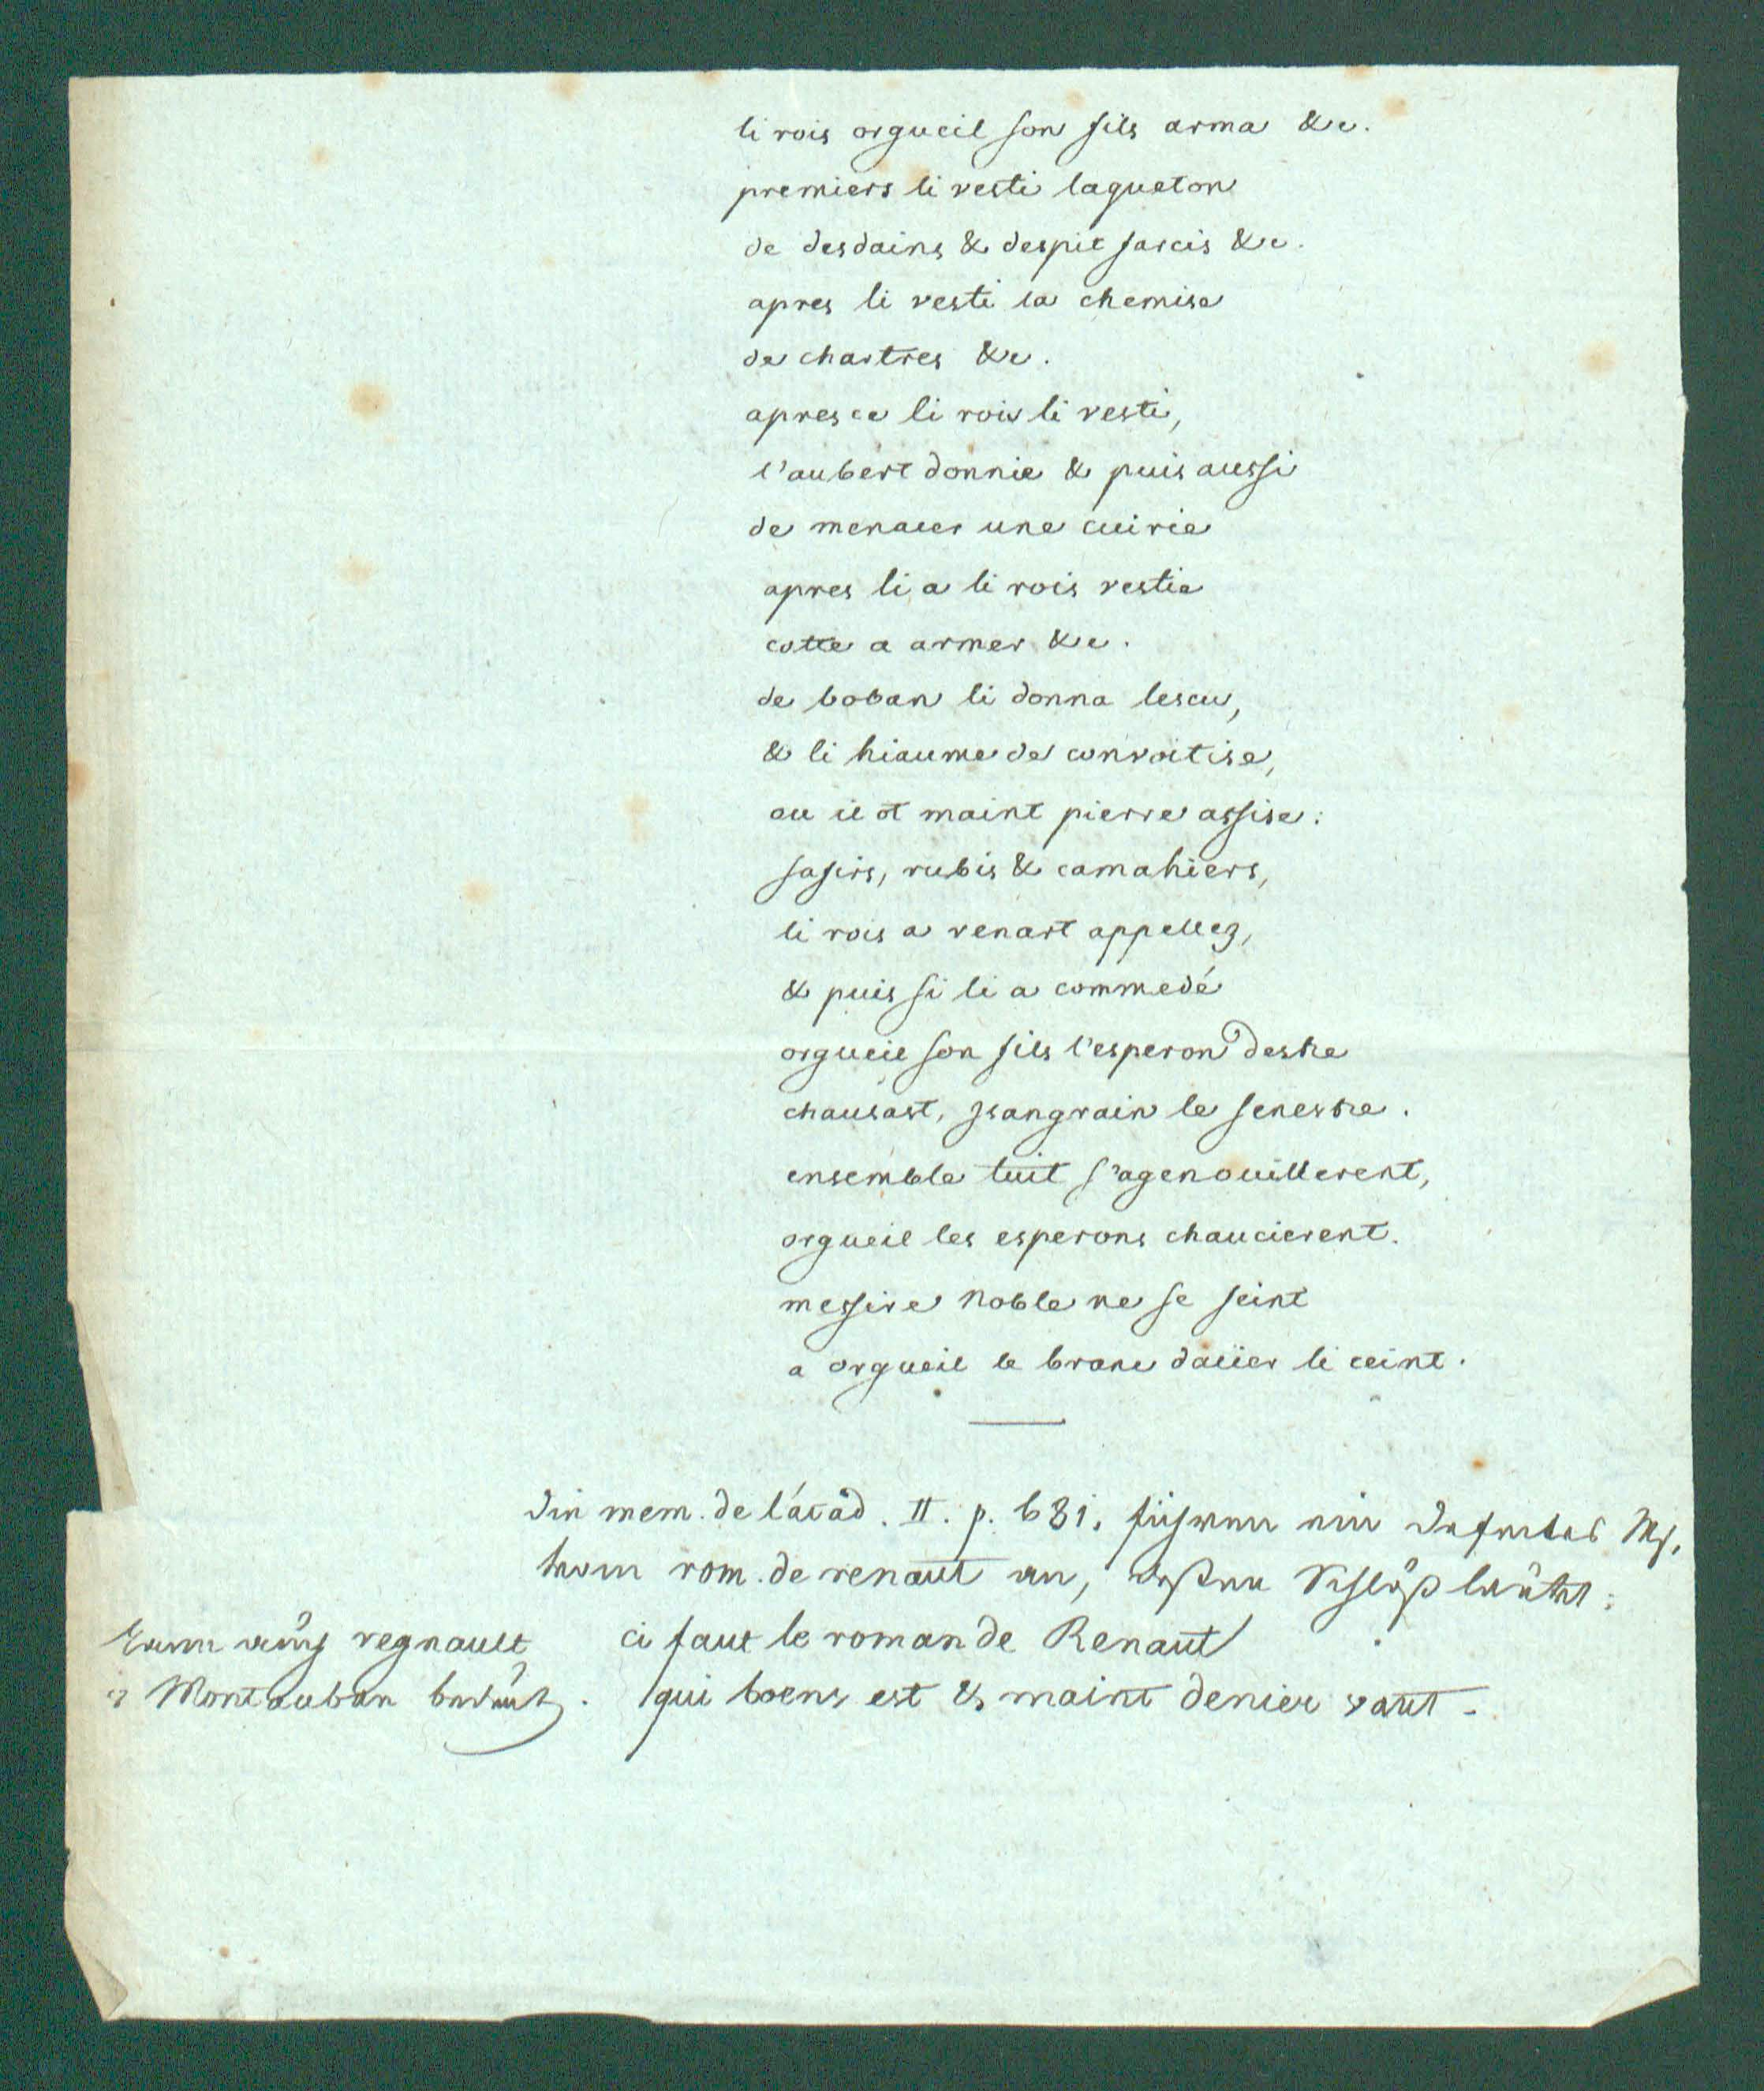 li rois orgueil son fils arma &c.
premiers li vesti laqueton
de desdains & despit farcis &c.
apres li vesti la chemise
de chartres &c.
apres ce li rois li vesti,
l'aubert donnie & puis aussi
de menacer une cuirie
apres li a li rois vestie
cotte a armer &c.
de boban li donna lescu,
& li hiaume de convoitise,
ou il ot maint pierre assise:
safirs, rubis & camahiers,
li rois a renart appellez,
& puis si li a commedé
orgueil son fils l'esperon destre
chausast, ysangrain le senestre.
ensemble tuit s'agenouillerent,
orgueil les esperons chaucierent.
messire Noble ne se feint
a orgueil le branc dacier li ceint.
Die mem. de l'acad. II. p. 681. führen ein defectes Ms.
vom rom. de renaut an, dessen Schluß lautet:
ci faut le roman de Renaut
qui boens est & maint denier vaut.
kann auch regnault
Montauban bedeut.